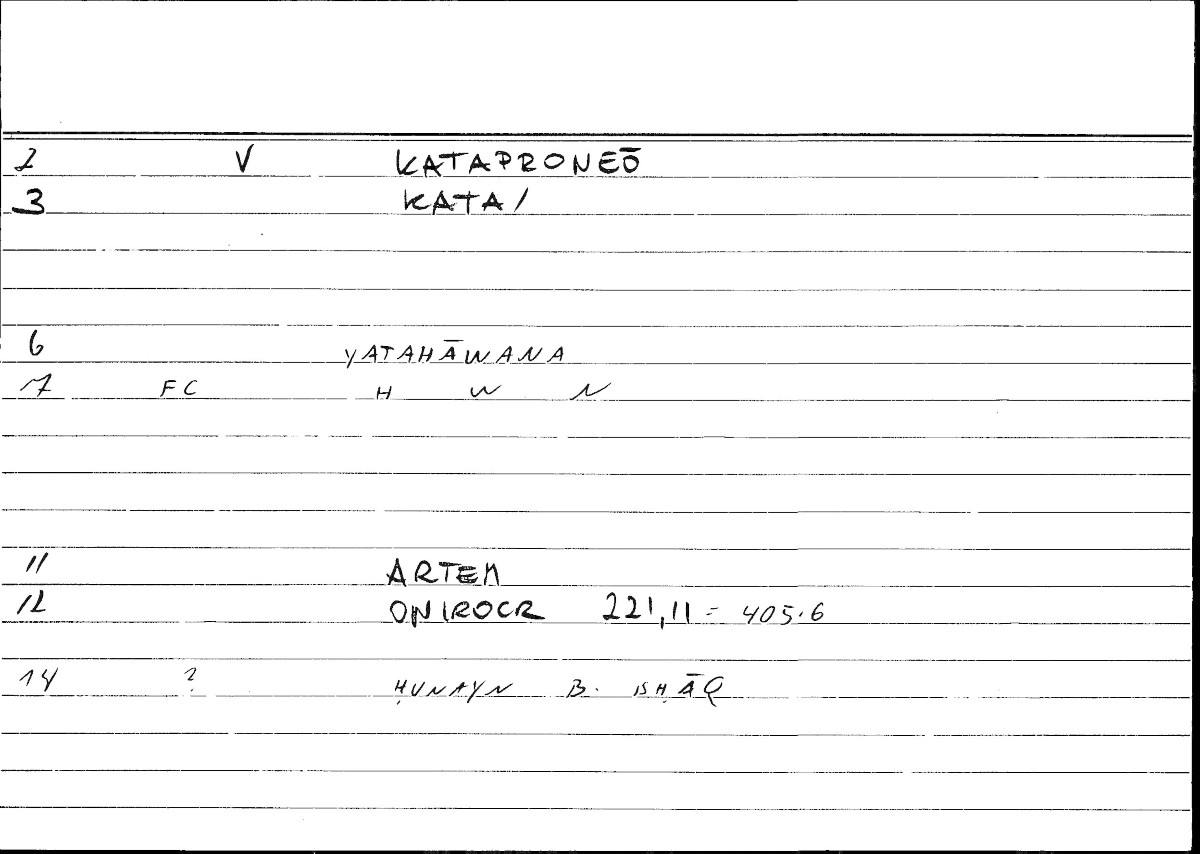 2 V KATAPRONEŌ
3 KATA/
6 YATAHĀWANA
7 FC H W N
11 ARTEM
12 ONIROCR 221,11 = 405.6
14 ? ḤUNAYN B. ISḤĀQ